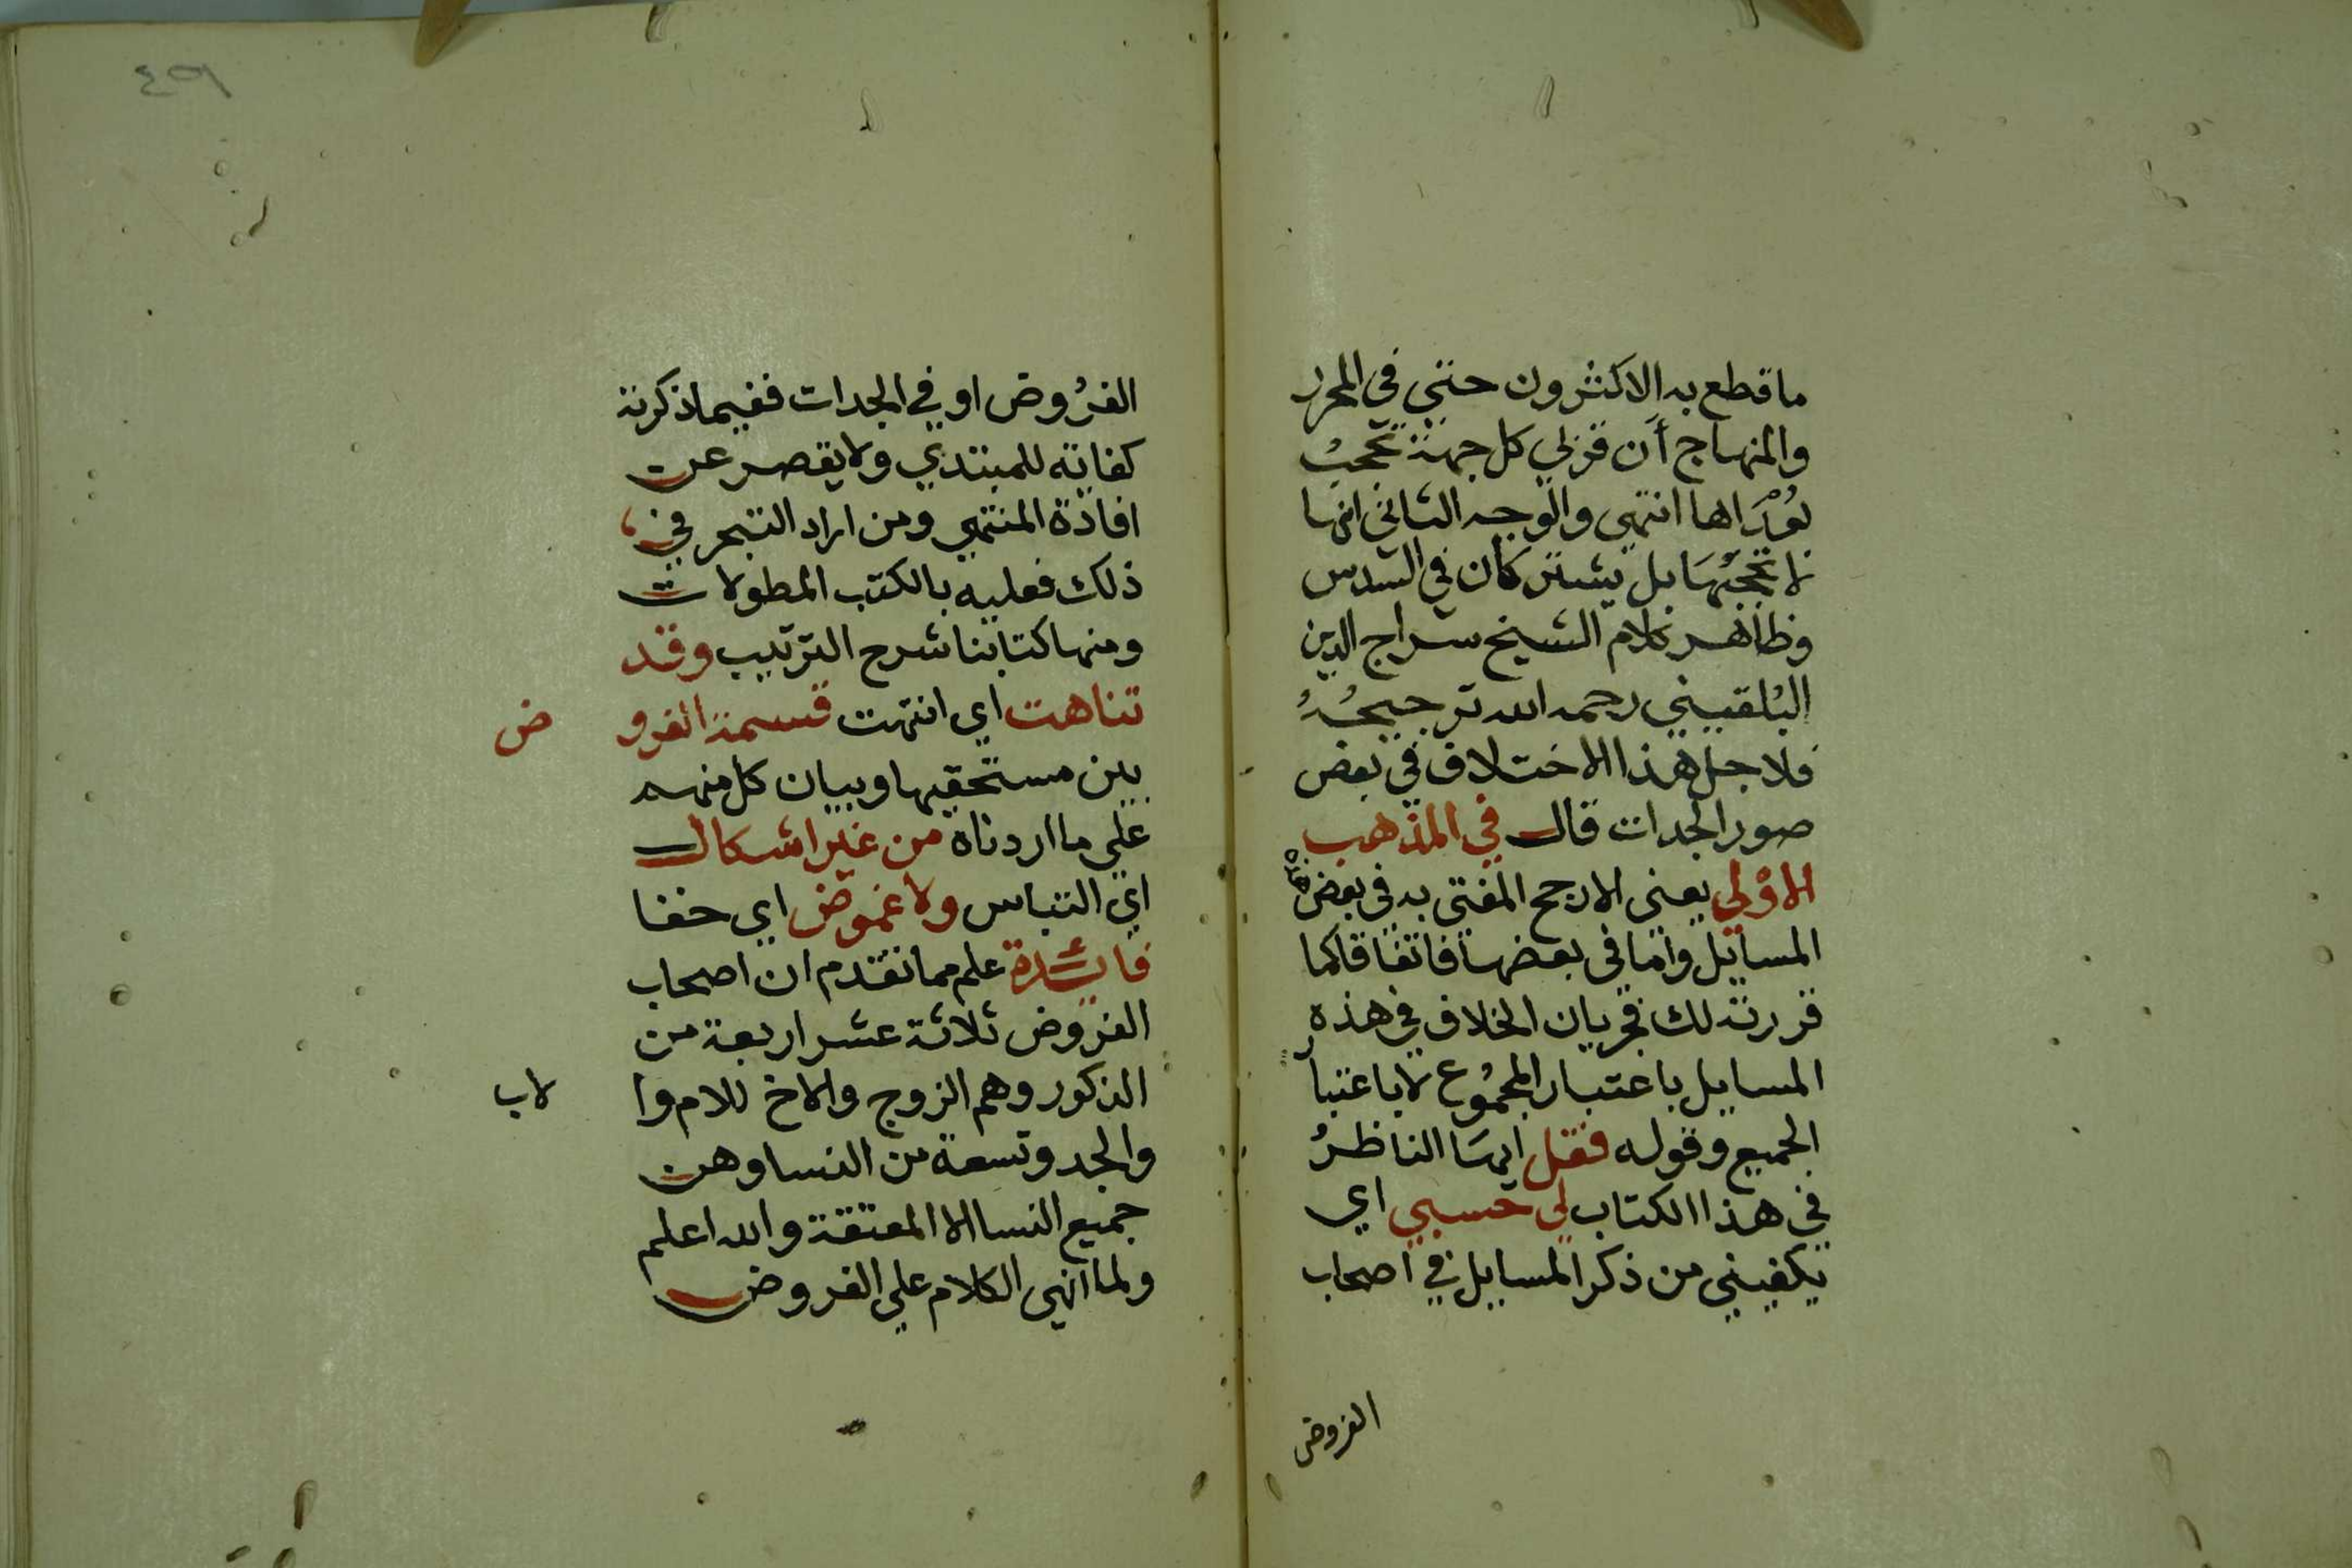 ما قطع به الاكثرون حتي في المحرر
والمنهاج أن قربي كل جهة تحجب
بُعْدَاها انتهي والوجه الثاني انها
لا تحجبها بل يشتركان في السدس
وظاهر كلام الشيخ سراج الدين
البُلقيني رحمه الله ترجيحُهُ
فلاجل هذا الاختلاف في بعض
صور الجدات قال في المذهب
الاوْلي يعني الارجح المفتي به في بعض
المسايل واما في بعضها فاتفاقا كما
قررته لك فجريان الخلاف في هذه
المسايل باعتبار المجمُوع لا باعتبار
الجميع وقوله فقل ايهَا الناظرُ
في هذا الكتاب لي حسبي اي
يكفيني من ذكر المسايل في اصحاب
الفروض
٤٩
الفرُوض او في الجدات ففيما ذكرته
كفاية للمبتدي ولا يقصر عن
افادة المنتهي ومن اراد التبحر في
ذلك فعليه بالكتب المطولات
ومنها كتابنا شرح الترتيب وقد
تناهت اي انتهت قسمة الفروض
بين مستحقيها وبيان كل منهم
علي ما اردناه من غير اشكال
اي التباس ولا غموض اي خفا
فائدة علم مما تقدم ان اصحاب
الفروض ثلاثة عشر اربعة من
الذكور وهم الزوج والاخ للام والاب
والجد وتسعة من النسا وهن
جميع النسا الا المعتقة والله اعلم
ولما انهي الكلام علي الفروض